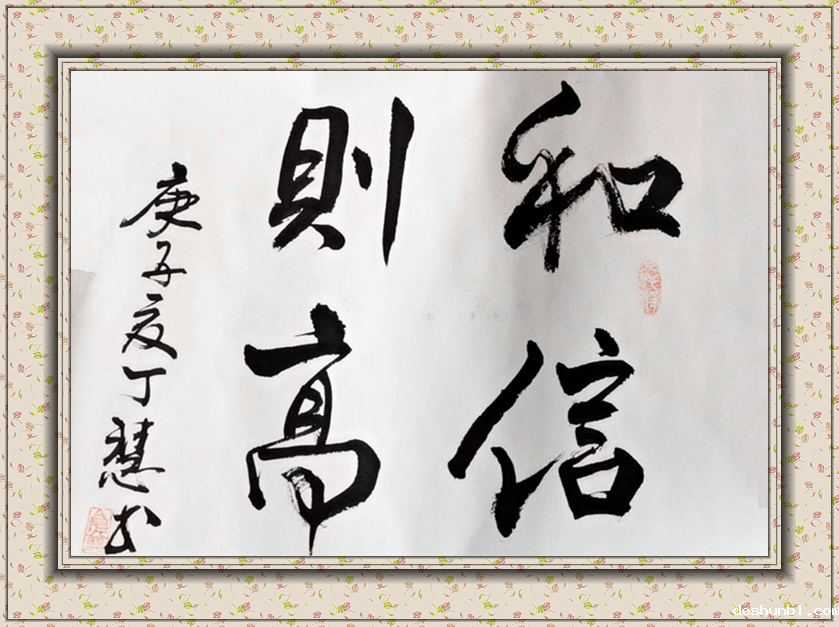 和信
則高
庚子夏丁慧书
deshunb1.com